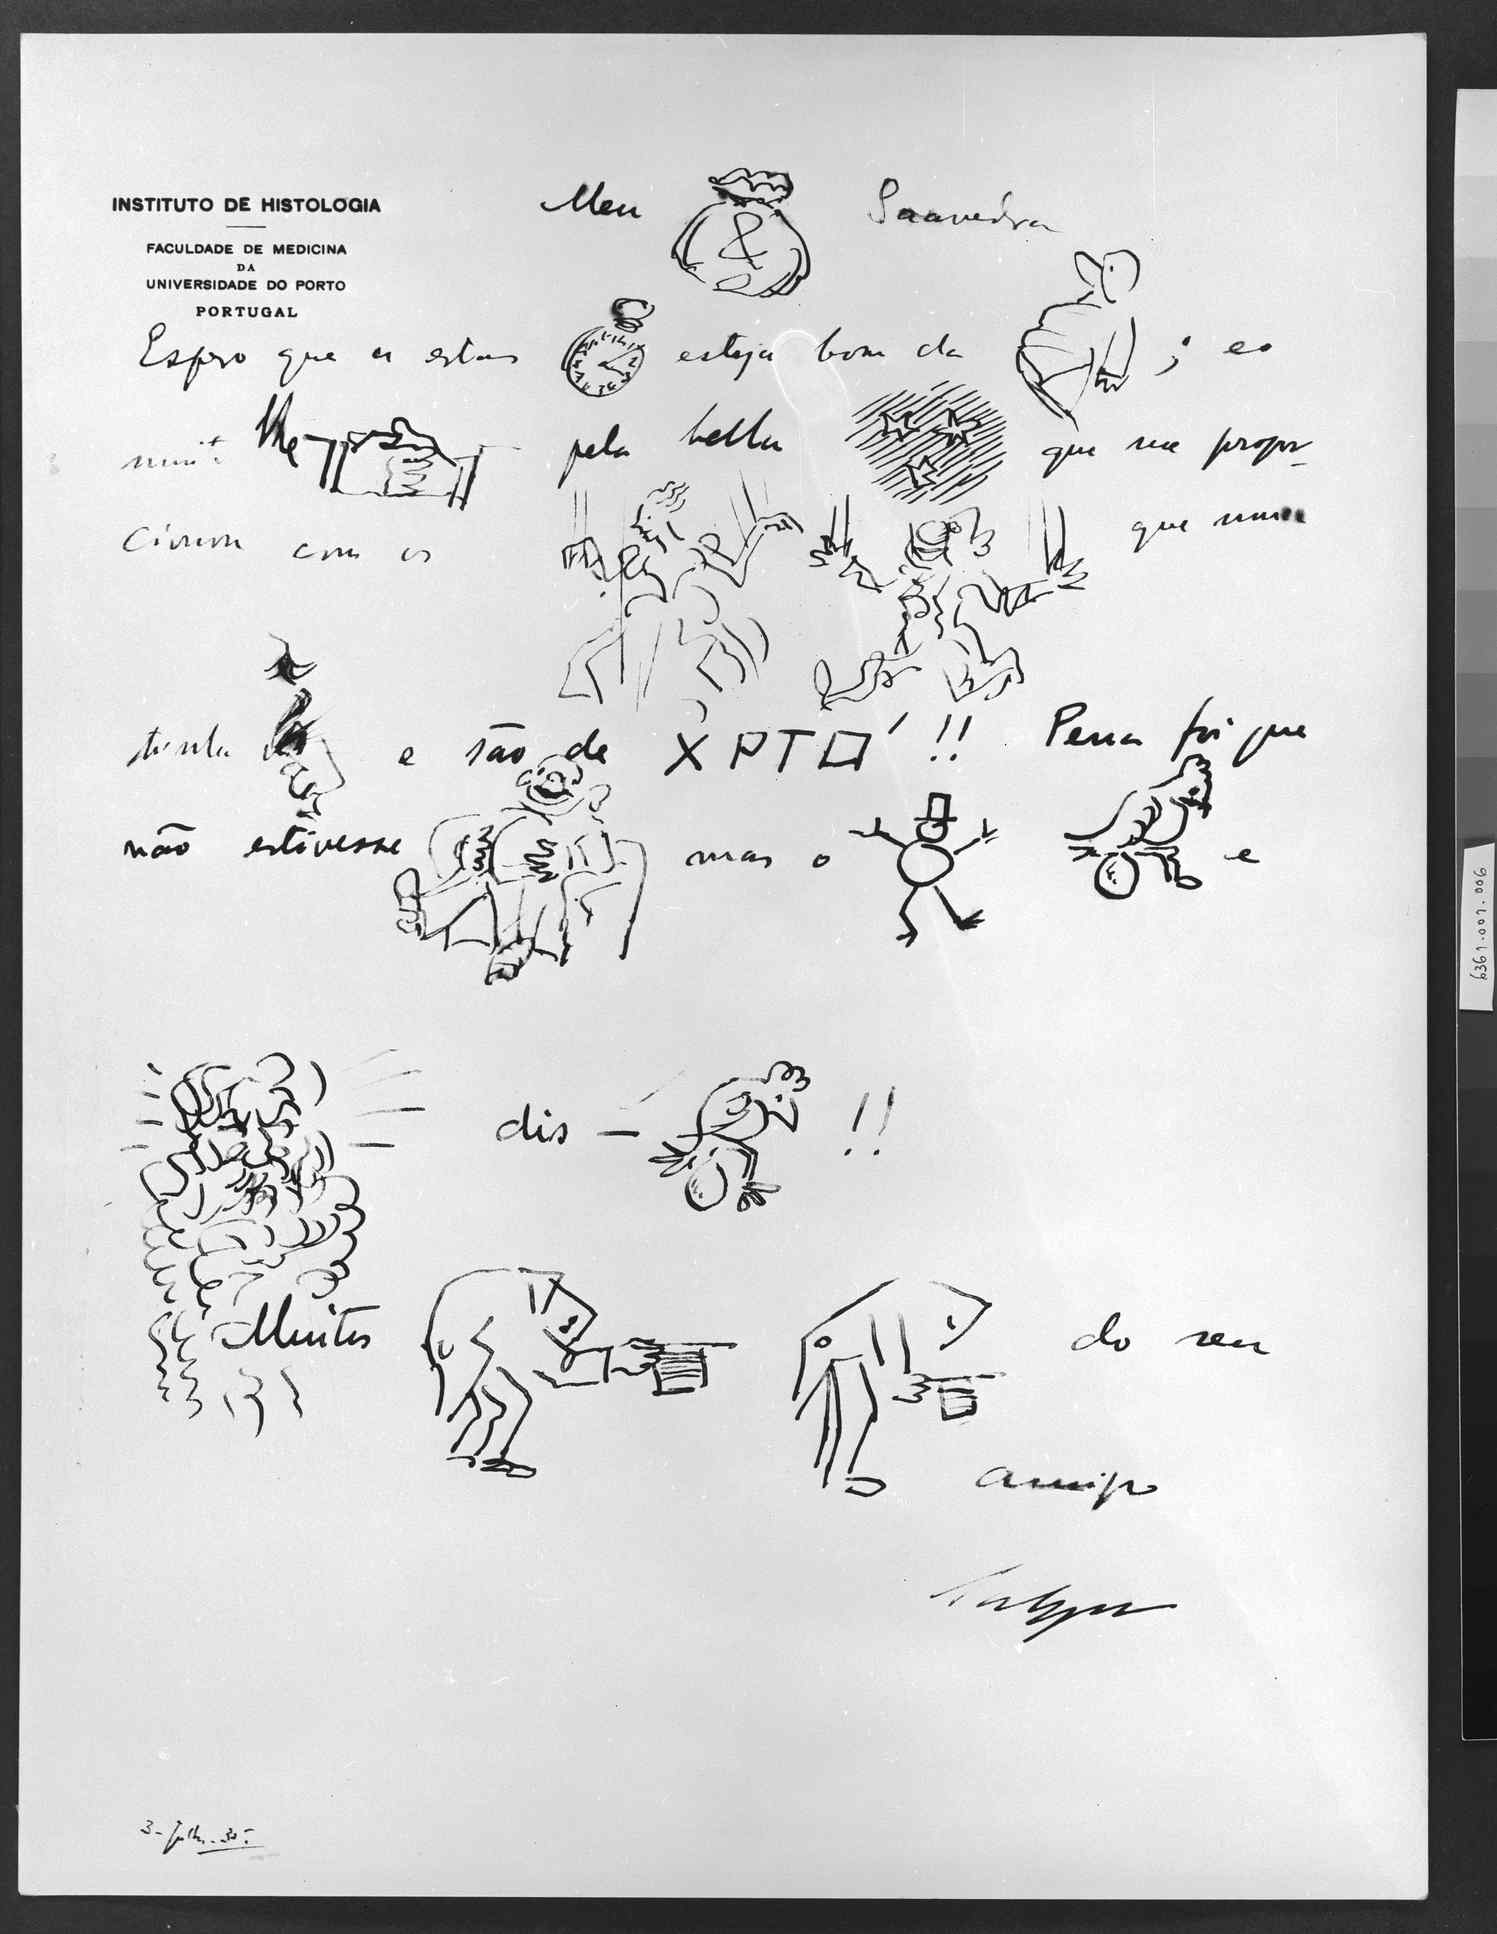 INSTITUTO DE HISTOLOGIA
FACULDADE DE MEDICINA
DA
UNIVERSIDADE DO PORTO
PORTUGAL
Meu & Saavedra
Espero que a estas esteja bom da ; eu
muito lhe pela bella que me propor-
cionou com os que nunca
tinha e são de XPTO !! Pena foi que
não estivesse mas o e
dis- !!
Muitos do seu
amigo
3-Julho-35
6369.007.006